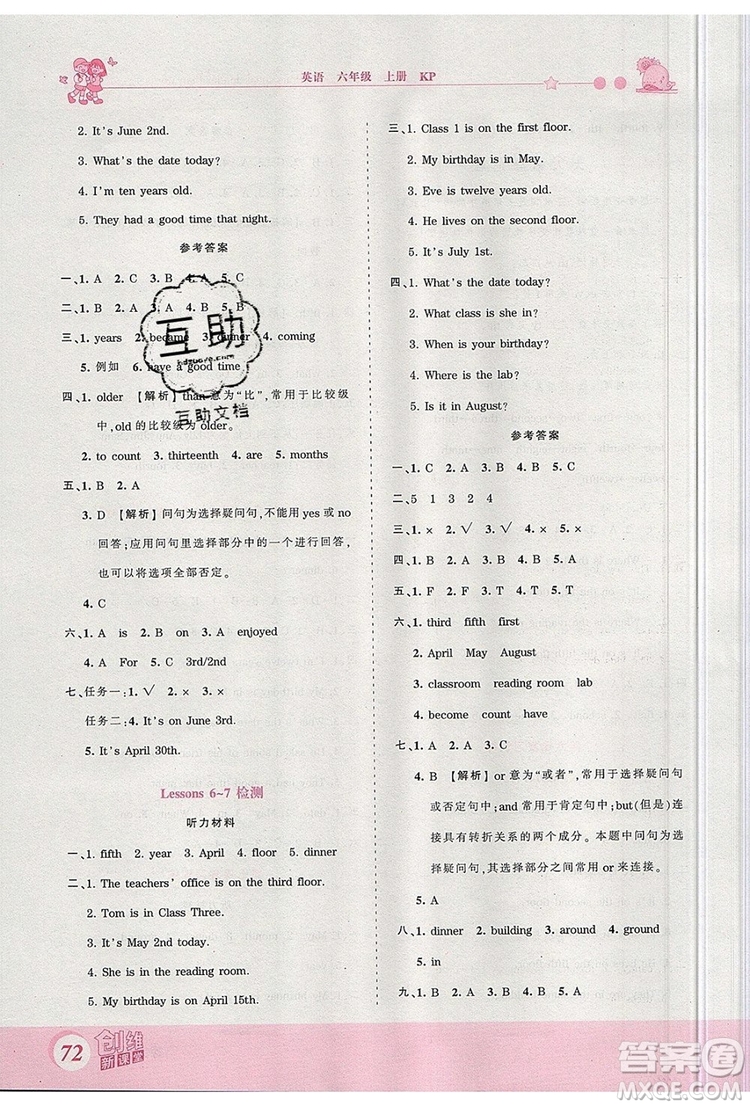 英语 六年级 上册 KP
2. It's June 2nd.
3. What's the date today?
4. I'm ten years old.
5. They had a good time that night.
参考答案
一、1. A 2. C 3. B 4. A 5. C
二、1. B 2. A 3. A 4. B 5. B
三、1. years 2. became 3. dinner 4. coming
5. 例如 6. have a good time
四、1. older 【解析】than 意为“比”,常用于比较级
中,old 的比较级为 older。
2. to count 3. thirteenth 4. are 5. months
五、1. B 2. A
3. D 【解析】问句为选择疑问句,不能用 yes 或 no
回答;应用问句里选择部分中的一个进行回答,
也可以将选项全部否定。
4. C
六、1. A is 2. B on 3. A enjoyed
4. A For 5. B 3rd/2nd
七、任务一:1. √ 2. × 3. ×
任务二:4. It's on June 3rd.
5. It's April 30th.
Lessons 6~7 检测
听力材料
一、1. fifth 2. year 3. April 4. floor 5. dinner
二、1. The teachers' office is on the third floor.
2. Tom is in Class Three.
3. It's May 2nd today.
4. She is in the reading room.
5. My birthday is on April 15th.
三、1. Class 1 is on the first floor.
2. My birthday is in May.
3. Eve is twelve years old.
4. He lives on the second floor.
5. It's July 1st.
四、1. What's the date today?
2. What class is she in?
3. When is your birthday?
4. Where is the lab?
5. Is it in August?
参考答案
一、1. C 2. A 3. A 4. B 5. C
二、5 1 3 2 4
三、1. × 2. √ 3. √ 4. × 5. ×
四、1. B 2. A 3. B 4. B 5. A
五、1. F 2. F 3. T 4. T 5. T
六、1. third fifth first
2. April May August
3. classroom reading room lab
4. become count have
七、1. A 2. A 3. C
4. B 【解析】or 意为“或者”,常用于选择疑问句
或否定句中;and 常用于肯定句中;but(但是)是
连接具有转折关系的两个成分。本题中问句为选
择疑问句,其选择部分之间常用 or 来连接。
5. A
八、1. dinner 2. building 3. around 4. ground
5. in
九、1. B 2. A 3. A 4. B 5. B
互助
hdzuowe.com
互助文档
72
创维
新课堂
答案卷
MXQE.COM